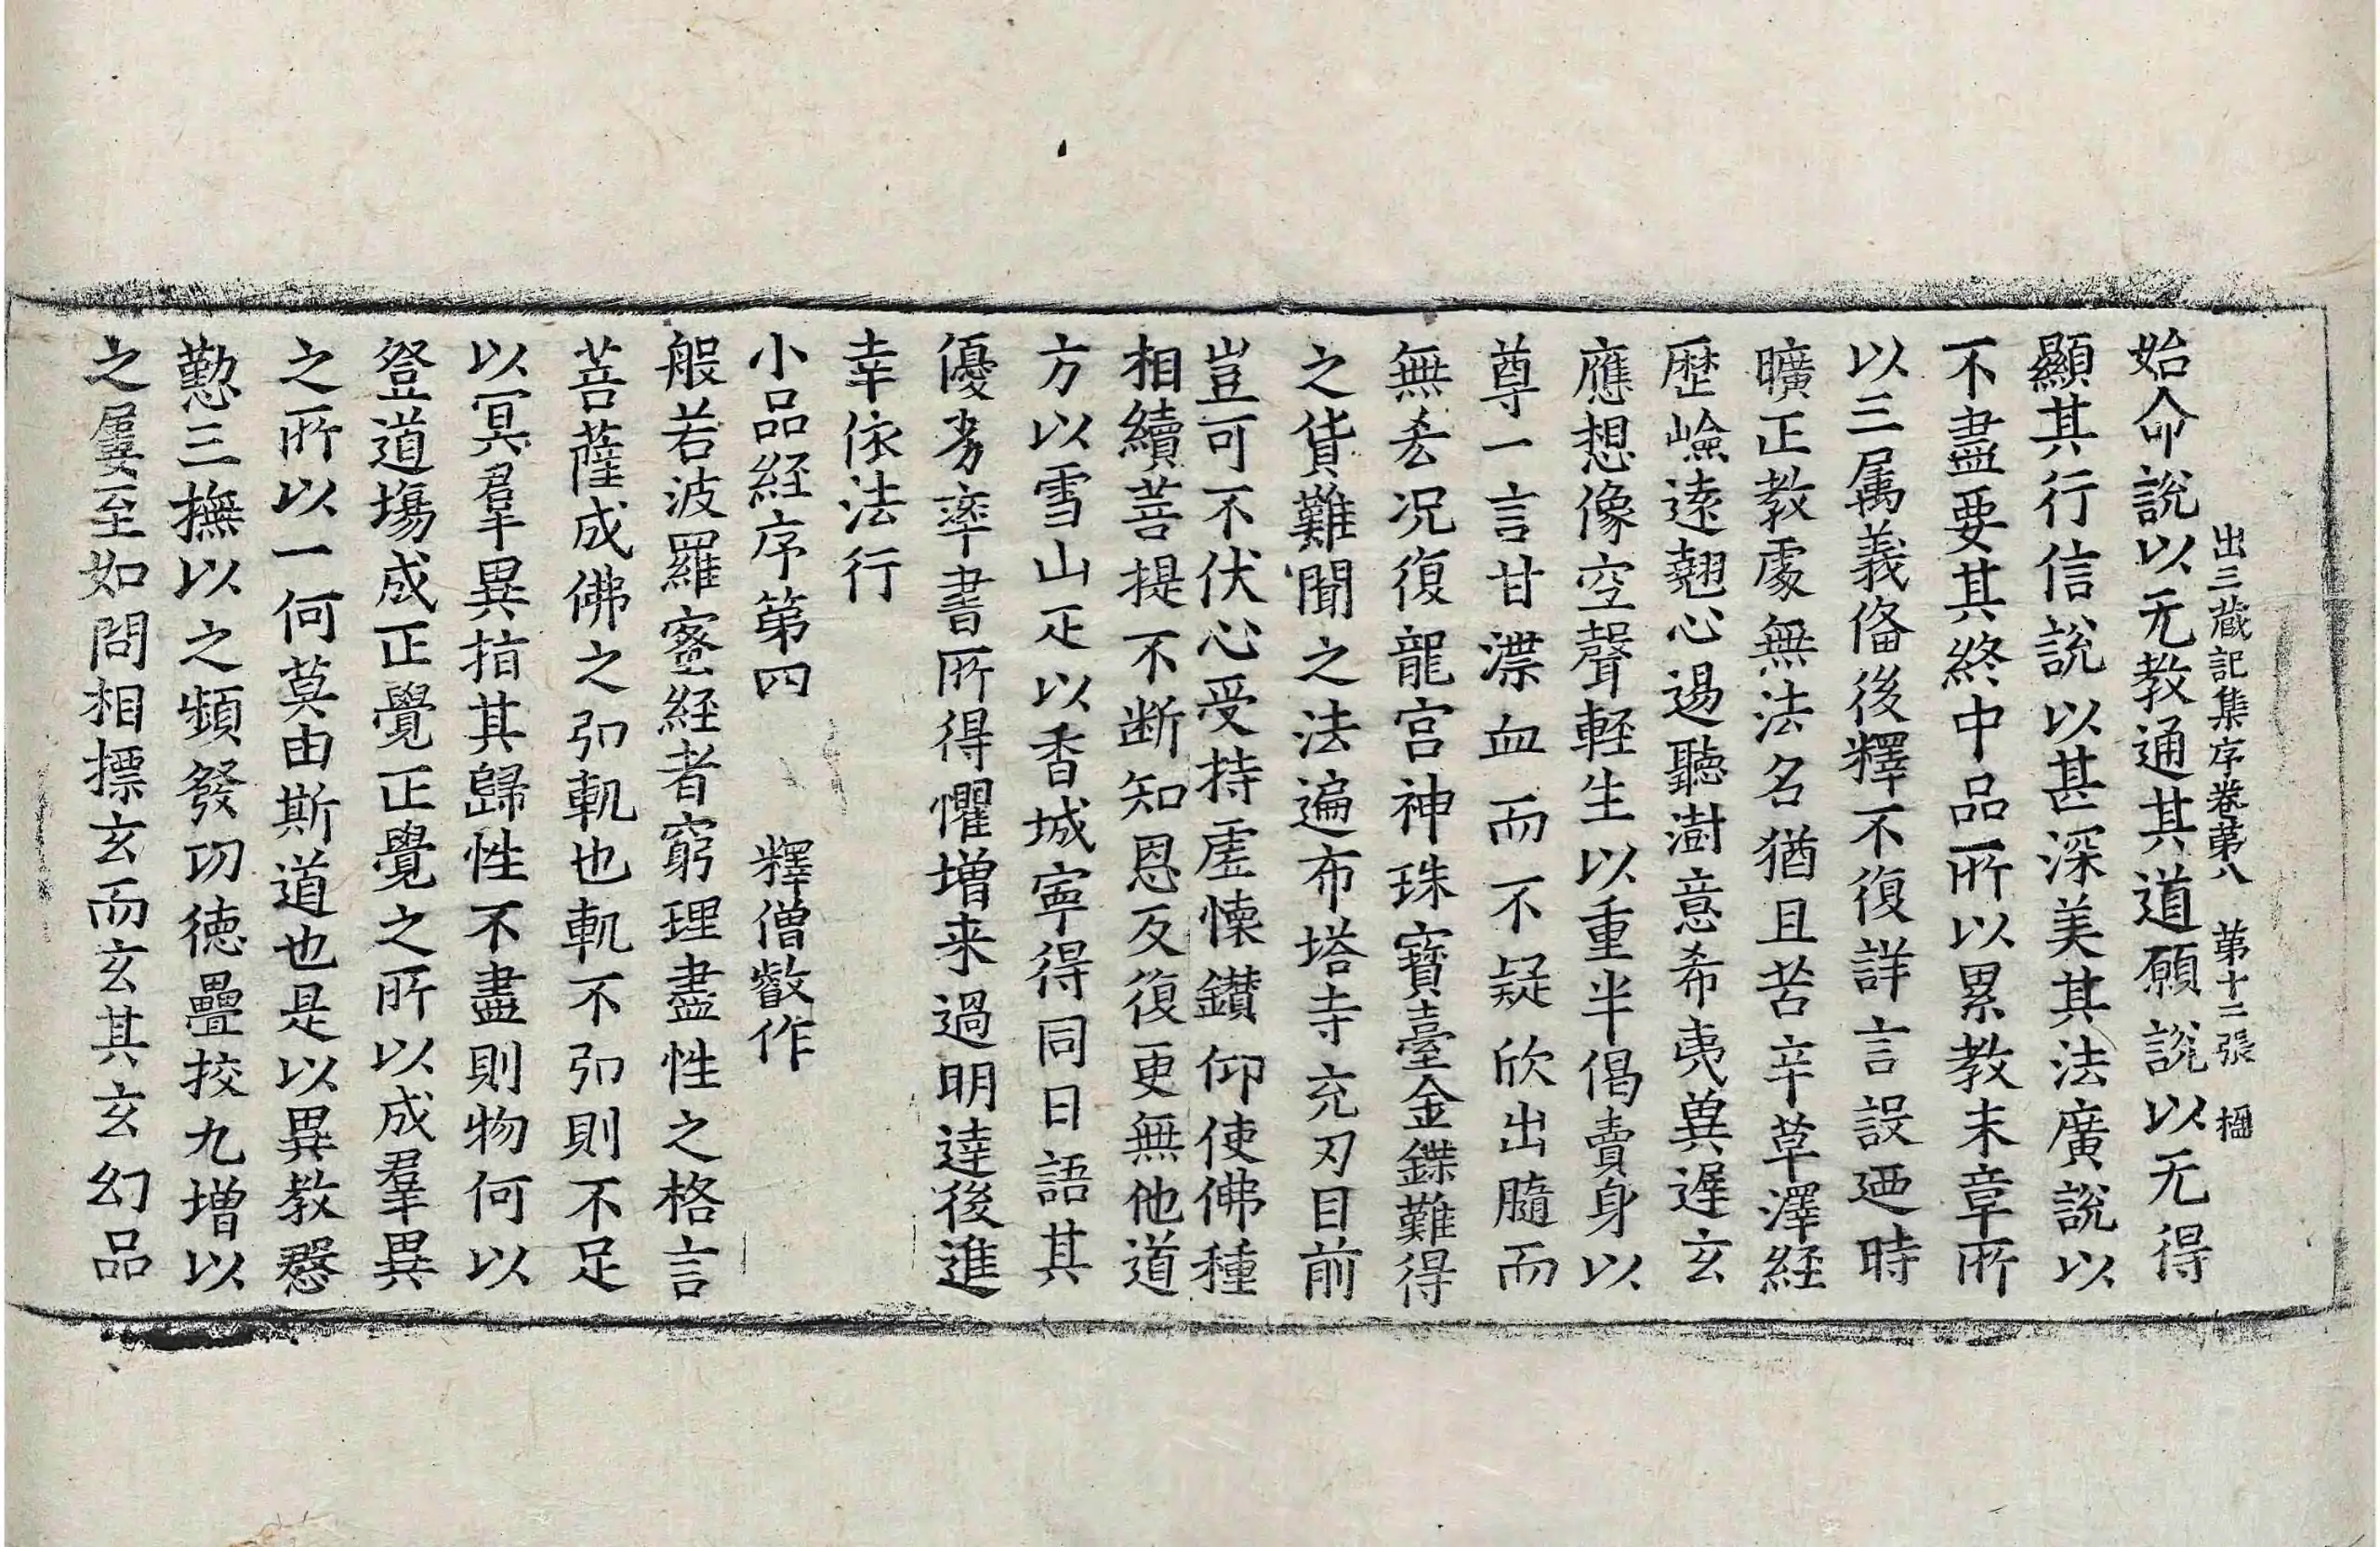 出三蔵記集序卷苐八　苐十二張　楹
始命說以无教通其道願說以无得
顯其行信說以甚深美其法廣說以
不盡要其終中品所以累教末章所
以三属義俻後釋不復詳言設迺時
曠正教處無法名猶且苦辛草澤経
歷嶮遠翹心遏聽澍意希夷兾遲玄
應想像空聲軽生以重半偈賣身以
尊一言甘渫血而不疑欣出髓而
無悋况復龍宫神珠寳臺金鍱難得
之貨難聞之法遍布塔寺充刃目前
豈可不伏心受持虗懐鑚仰使佛種
相續菩提不断知恩反復更無他道
方以雪山疋以香城寧得同日語其
優劣率書所得懼増来過明逹後進
幸依法行
小品経序第四　釋僧叡作
般若波羅蜜経者窮理盡性之格言
菩薩成佛之弘軌也軌不弘則不足
以冥羣異指其歸性不盡則物何以
登道塲成正覺正覺之所以成羣異
之所以一何莫由斯道也是以異教慇
懃三撫以之頻發功徳疊挍九増以
之屢至如問相摽玄而玄其玄幻品